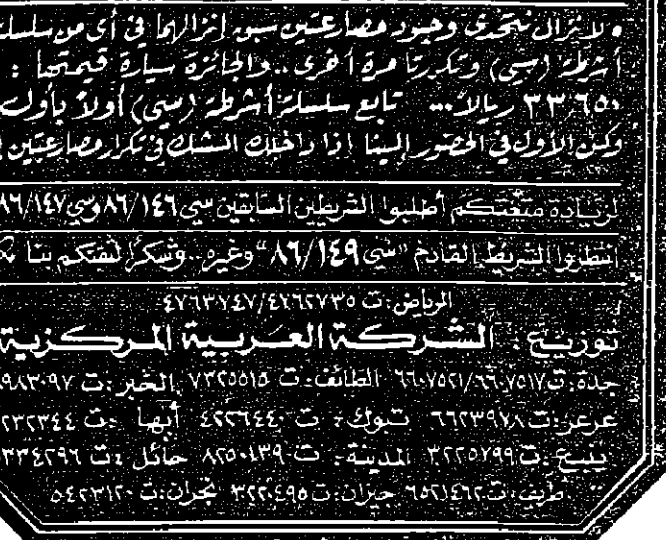 • لا نزال نتحدى وجود مصارعتين سبق إنزالهما في أي من سلسلة
أشرطة (سي) وتكررتا مرة أخرى.. والجائزة سيارة قيمتها :
٣٣٫٦٥٠ ريالاً... تابع سلسلة أشرطة (سي) أولاً بأول
وكن الأول في الحضور إلينا إذا داخلك الشك في تكرار مصارعتين
لزيادة متعتكم أطلبوا الشريطين السابقين سي ٨٦/١٤٦ وسي ٨٦/١٤٧
انتظروا الشريط القادم "سي ٨٦/١٤٩" وغيره.. وشكراً لثقتكم بنا
الرياض: ت ٤٧٦٣٧٤٧/٤٧٦٢٧٣٥
توزيع : الشركة العربية المركزية
جدة: ت ٦٦٠٧٥٢١/٦٦٠٧٥١٧ الطائف: ت ٧٣٢٥٥١٥ الخبر: ت
عرعر: ت ٦٦٢٣٩٧٨ تبوك: ت ٤٢٢٦٤٤٠ أبها : ت
ينبع: ت ٣٢٢٥٧٩٩ المدينة: ت ٨٢٥٠١٣٩ حائل : ت
طريف: ت ٦٥٢١٤٦٢ جيزان: ت ٣٢٢٠٤٩٥ نجران: ت ٥٤٢٣١٢٠